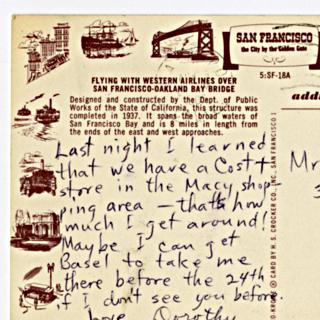 SAN FRANCISCO
the City by the Golden Gate
5:SF-18A
FLYING WITH WESTERN AIRLINES OVER
SAN FRANCISCO-OAKLAND BAY BRIDGE
Designed and constructed by the Dept. of Public
Works of the State of California, this structure was
completed in 1937. It spans the broad waters of
San Francisco Bay and is 8 miles in length from
the ends of the east and west approaches.
addr
Last night I learned
that we have a Cost +
store in the Macy shop-
ping area — that's how
much I get around!
Maybe I can get
Basel to take me
there before the 24th
if I don't see you before.
Love Dorothy
Mr
CARD BY H. S. CROCKER CO., INC., SAN FRANCISCO 1